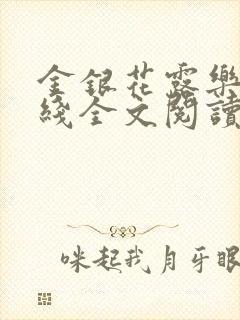 金銀花露樂
綫全文閱讀
咪起我月牙眼